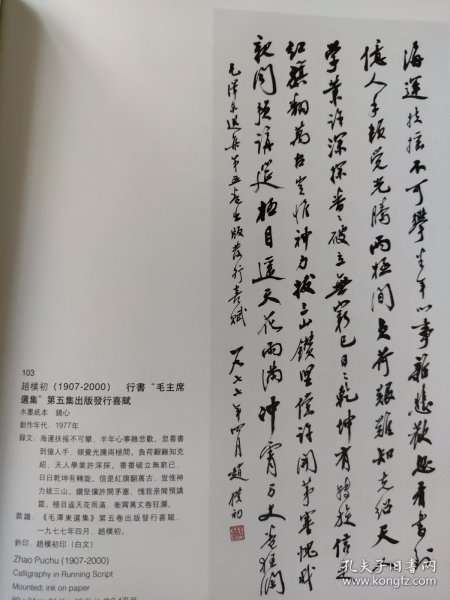 海運扶搖不可攀半年心事雜悲歡忽看書到
億人手頓覺光騰兩極間負荷艱難知克紹天人
學業許深探番番破立無窮已日日乾坤有轉旋信是
紅旗翻萬古豈惟神力拔三山鑽堅信許開茅塞愧我
親聞預講筵極目遥天花雨滿冲霄万丈卷狂瀾
毛澤東選集第五卷出版發行喜賦 一九七七年四月 趙樸初
103
趙樸初(1907-2000) 行書“毛主席
選集”第五集出版發行喜賦
水墨紙本 鏡心
創作年代:1977年
錄文:海運扶搖不可攀,半年心事雜悲歡。忽看書
到億人手,頓覺光騰兩極間。負荷艱難知克
紹,天人學業許深探。番番破立無窮已,
日日乾坤有轉旋。信是紅旗翻萬古,豈惟神
力拔三山。鑽堅彌許開茅塞,愧我亲聞預講
筵。極目遥天花雨滿,衝霄萬丈卷狂瀾。
款識:《毛澤東選集》第五卷出版發行喜賦,
一九七七年四月,趙樸初。
鈐印:趙樸初印(白文)
Zhao Puchu (1907-2000)
Calligraphy in Running Script
Mounted; ink on paper
孔夫子旧书网